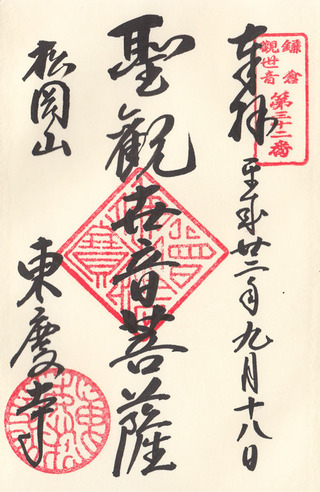 鎌倉
觀世音
第三十二番
奉拝
平成廿三年九月十八日
聖觀世音菩薩
松岡山
東慶寺